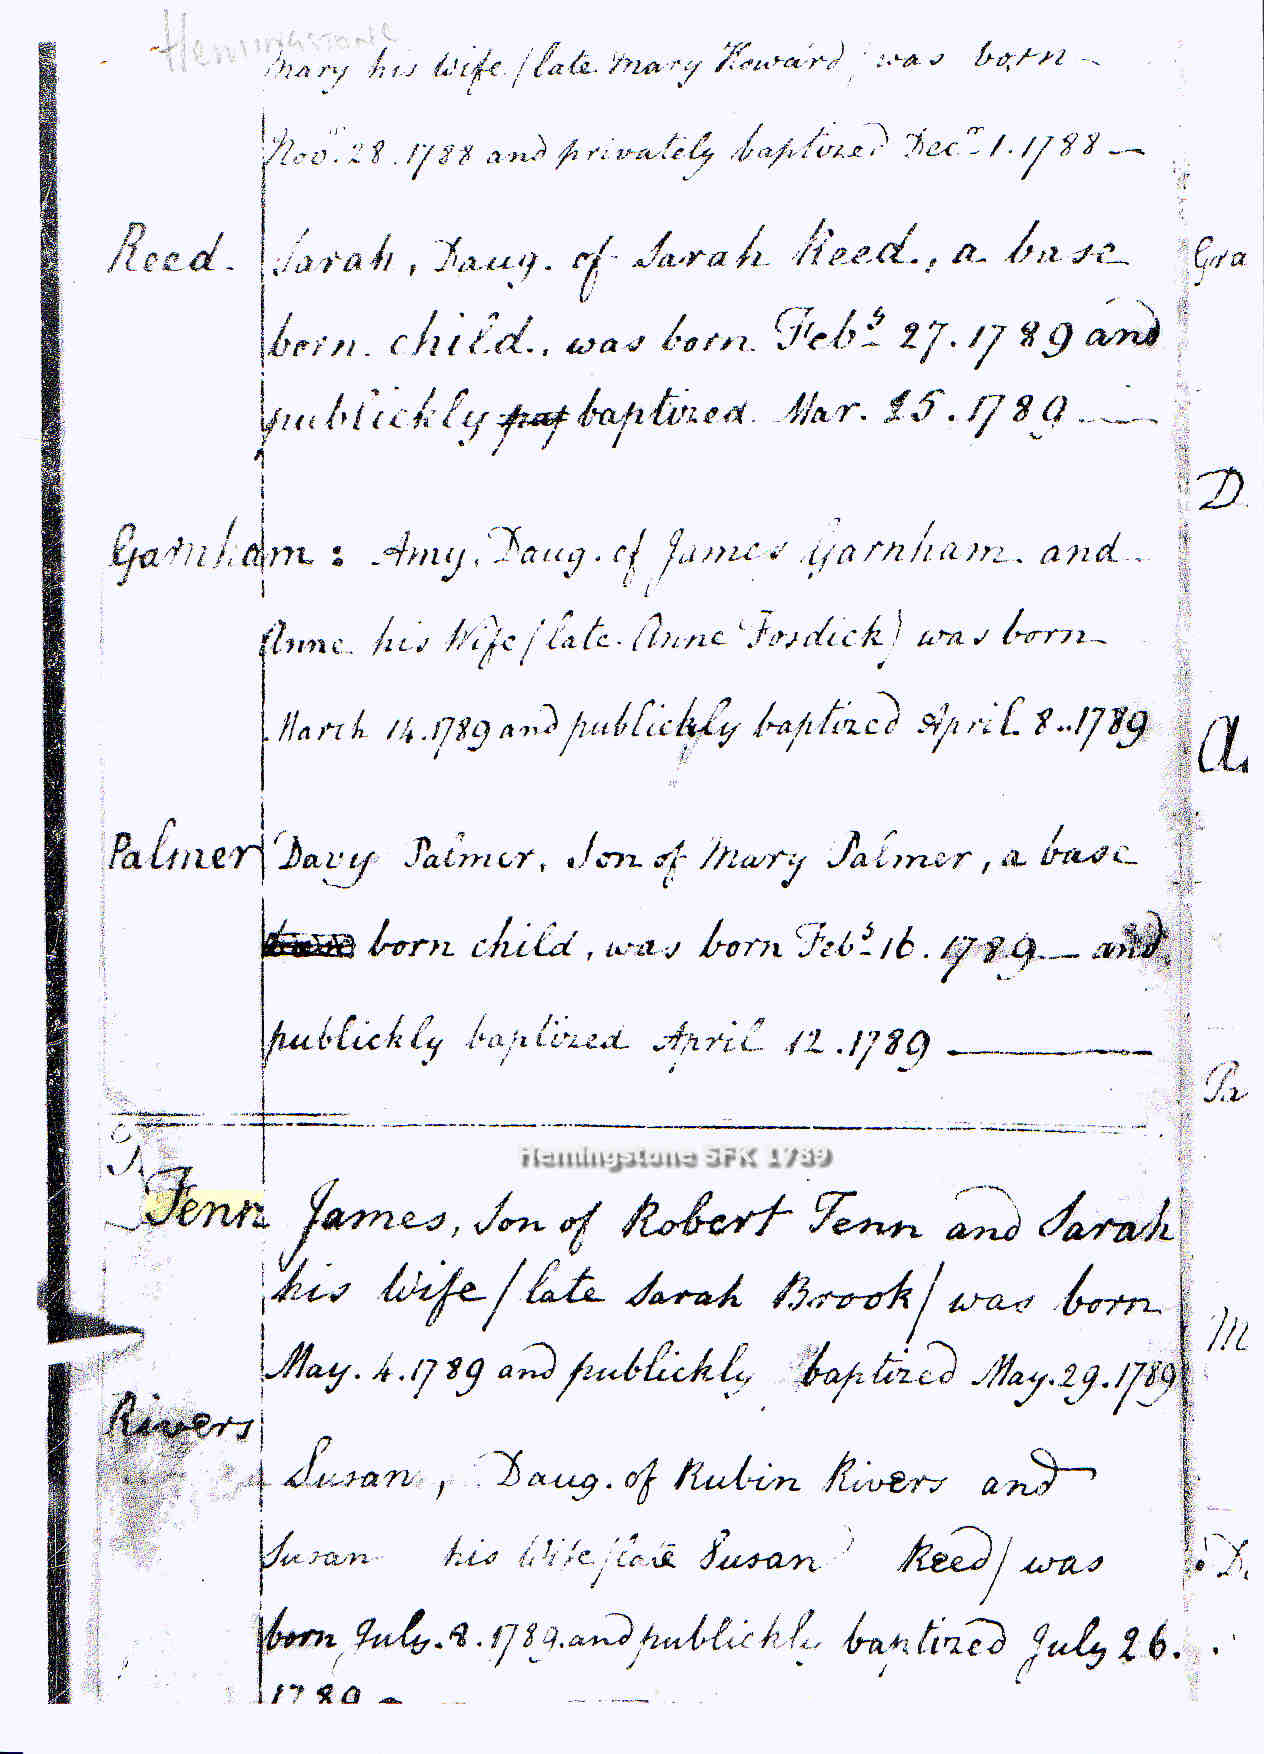 Hemingstone
Mary his Wife / late Mary Howard / was born
Novr. 28. 1788 and privately baptized Decr. 1. 1788 —
Reed. Sarah, Daug. of Sarah Reed., a base
born child., was born Feby. 27. 1789 and
publickly baptized Mar. 25. 1789 —
Garnham: Amy, Daug. of James Garnham and
Anne his Wife / late Anne Fosdick / was born
March 14. 1789 and publickly baptized April 8. 1789
Palmer Davy Palmer, Son of Mary Palmer, a base
born child, was born Feby. 16. 1789 — and
publickly baptized April 12. 1789 —
Hemingstone SFK 1789
Fenn James, Son of Robert Fenn and Sarah
his Wife / late Sarah Brook / was born
May. 4. 1789 and publickly baptized May. 29. 1789
Rivers
Susan, Daug. of Rubin Rivers and
Susan his Wife / late Susan Reed / was
born July. 8. 1789. and publickly baptized July 26.
1789 —
Gra
D
A
Pa
M
D